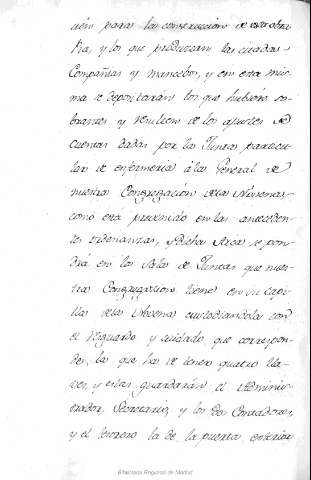 ción para la construccion de esta obra
Pia, y los que produzcan las citadas
Compañias y mancebos, y en esta mis-
ma se depositarán los que hubiere so-
brantes y resulten de los ajustes de
cuentas dadas por la Junta particu-
lar de enfermeria á la General de
nuestra Congregación de la Novena
como está prevenido en las anteceden-
tes ordenanzas, dicha Arca se pon-
drá en la Sala de Juntas que nues-
tra Congregacion tiene en su capi-
lla de la Novena custodiandola con
el resguardo y cuidado que correspon-
de, la que ha de tener quatro lla-
ves, y estas guardarán el Adminis-
trador, Secretario, y los dos Contadores,
y el tesorero la de la puerta exterior
Biblioteca Regional de Madrid